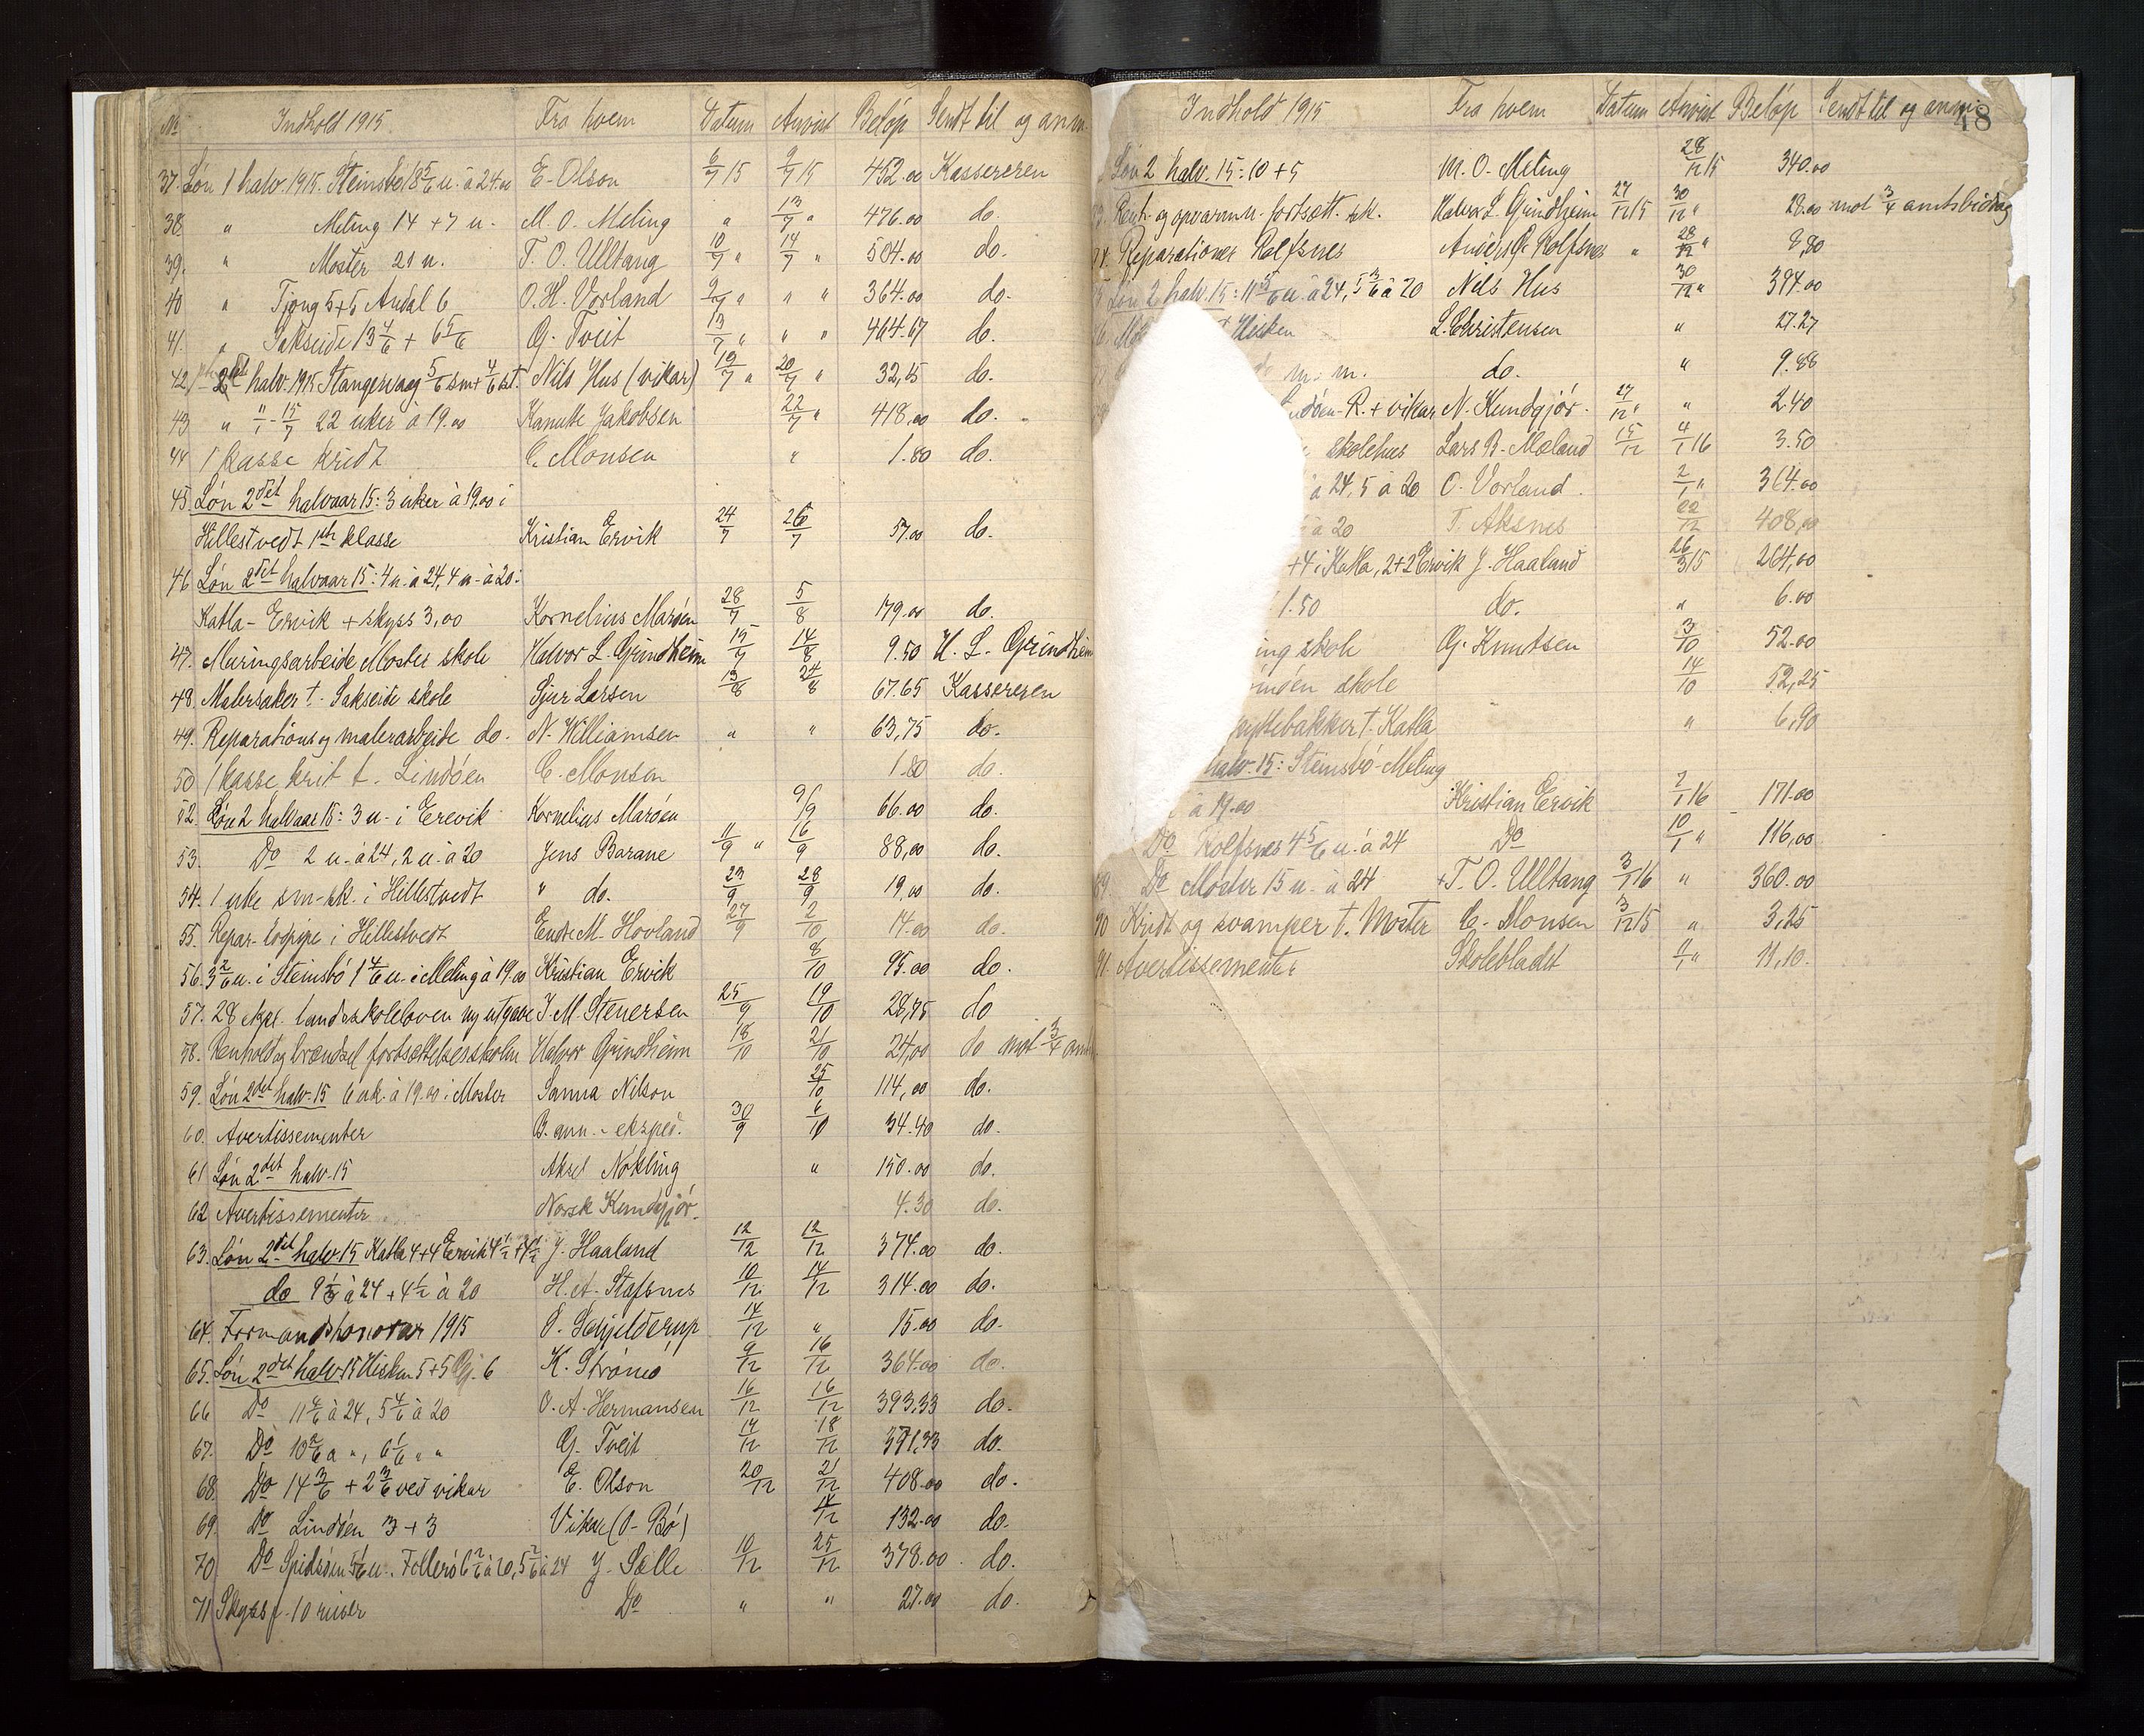 No Indhold 1915. Fra hvem Datum Anvist Beløp Sendt til og anm.
37. Løn 1 halv. 1915. Steinsbø 18 5/6 u. à 24.00 E. Olson 6/7 15 9/7 15 452.00 Kassereren
38. " Meling 14 + 7 u. M. O. Meling " 13/7 " 476.00 do.
39. " Moster 21 u. T. O. Ulltang 10/7 " 14/7 " 504.00 do.
40 " Tjong 5+5 Andal 6 O. H. Vorland 9/7 " " " 364.00 do.
41. " Sakseide 13 4/6 + 6 5/6 G. Tveit 13/7 " " " 464.67 do.
42. 2det halv. 1915 Stangervaag 5/6 sm + 4/6 st. Nils Hus (vikar) 19/7 " 20/7 " 32,15 do.
43 " 15/7 22 uker à 19.00 Kanutte Jakobsen 22/7 " 418,00 do.
44 1 kasse kridt C. Monsen " 1.80 do.
45. Løn 2det halvaar 15: 3 uker à 19.00 i
Hillestvedt 1ste klasse Kristian Ervik 24/7 26/7 57.00 do.
46. Løn 2det halvaar 15: 4 u. à 24, 4 u. à 20:
Katla - Ervik + skyss 3,00 Kornelius Marøen 28/7 5/8 179.00 do.
47. Muringsarbeide Moster skole Halvor L. Grindheim 15/7 14/8 9.50 H. L. Grindheim
48. Malersaker t. Sakseide skole Sjur Larsen 13/8 24/8 67.65 Kassereren
49. Reparations og malerarbeide do. N. Williamsen " " 63,75 do.
50 1 kasse krit t. Lindøen C. Monsen 1.80 do.
52. Løn 2 halvaar 15: 3 u. i Erevik Kornelius Marøen 9/9 66.00 do.
53. Do 2 u. à 24, 2 u. à 20 Jens Barane 11/9 " 16/9 88,00 do.
54. 1 uke sm-sk. i Hillestvedt " do. 23/9 28/9 19,00 do.
55. Repar. lospipe i Hillestvedt Endre M. Hovland 27/9 2/10 14.00 do.
56. 3 2/6 u. i Steinsbø 1 4/6 u. i Meling à 19.00 Kristian Ervik 8/10 95.00 do.
57. 28 ekpl. landsskoleloven ny utgave I. M. Stenersen 25/9 19/10 28,75 do
58. Renhold og brændsel fortsættelsesskolen Halvor Grindheim 18/10 21/10 24,00 do mot 3/4 am
59. Løn 2det halv. 15 6 uk. à 19.00 i Moster Sanna Nilson 25/10 114,00 do.
60. Avertissementer B. ann. - ekspe. 30/9 6/10 34.40 do.
61 Løn 2det halv. 15 Aksel Nøkling " 150.00 do.
62 Avertissementer Norsk Kundgjør. 4.30 do.
63. Løn 2det halv. 15 Katla 4+4 Ervik 4 1/2 + 4 1/2 J. Haaland 12/12 12/12 374.00 do.
do 9 à 24 + 4 1/2 à 20 H. A. Stafsnes 10/12 14/12 314.00 do.
64. Formandshonorar 1915 O. Schjelderup 14/12 " 15.00 do.
65. Løn 2det halv. 15 Hisken 5+5 Gj. 6 K. Strømø 9/12 16/12 364.00 do.
66 Do 11 4/6 à 24, 5 4/6 à 20 O. A. Hermansen 16/12 16/12 393,33 do.
67. Do 10 2/6 a ", 6 1/6 " " G. Tveit 14/12 18/12 371,33 do.
68. Do 14 3/6 + 2 3/6 ved vikar E. Olson 20/12 21/12 408.00 do.
69. Do Lindøen 3+3 Vikar (O. Bø) 132.00 do.
70. Do Spidsøen 5 1/6 u., Follerø 6 2/6 à 20, 5 2/6 à 24 J. Sælle 10/12 25/12 378.00 do.
71 Skyss f. 10 reiser Do " " 27.00 do.
Indhold 1915 Fra hvem Datum Anvist Beløp Sendt til og anm.
48
Løn 2 halv. 15: 10 + 5 M. O. Meling 28/12 15 340.00
Renh. og opvarmn. fortsætt. sk. Halvor L. Grindheim 27/12 15 30/12 " 28.00 mot 3/4 amtsbidrag
Reparationer Rolfsnes Anders G. Rolfsnes " 28/12 " 9,80
Løn 2 halv. 15: 11 5/6 u. à 24, 5 3/6 à 20 Nils Hus 30/12 " 394.00
Hisken L. Christensen " 27.27
m. m. do. " 9.88
R. + vikar N. Kundgjør. 27/12 " " 2.40
skolehus Lars B. Mæland 15/12 4/1 16 3.50
à 24, 5 à 20 O. Vorland. 2/1 " 364.00
à 20 T. Aksnes 22/12 408,00
+4 i Katla, 2+2 Ervik J. Haaland 26/3 15 264,00
1.50 do. " 6.00
ing skole G. Knutsen 3/10 52.00
skole 14/10 52,25
spyttebakker t. Katla " 6,90
halv. 15: Steinsbø - Meling
à 19.00 Kristian Ervik 7/1 16 171.00
Do Rolfsnes 4 5/6 u. à 24 Do 10/1 " 116,00
89. Do Moster 15 u. à 24 T. O. Ulltang 3/1 16 " 360.00
90 Kridt og svamper t. Moster C. Monsen 3/12 15 " 3,25
91. Avertissementer Skolebladet 11/1 " 11,10.